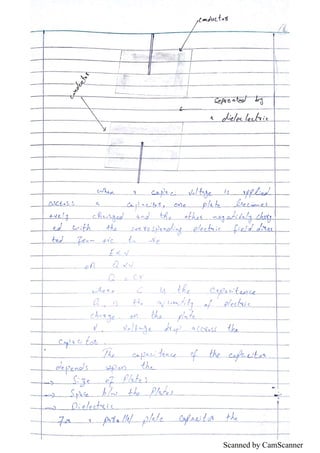 conductor
conductor
Seperated by
a dielectric
when a voltage is applied
across a capacitor, one plate becomes
+vely charged and the other negatively charg
ed with the corresponding electric field direc
ted from +ve to -ve
E∝V
or Q∝V
Q = CV
where C is the Capacitance
Q is the quantity of electric
charge on the plate
V. Voltage drop across the
Capacitor.
The capacitance of the capacitor
depends upon the
→ Size of Plates
→ Space b/w the Plates
→ Dielectric
For a parallel plate Capacitor the
Scanned by CamScanner